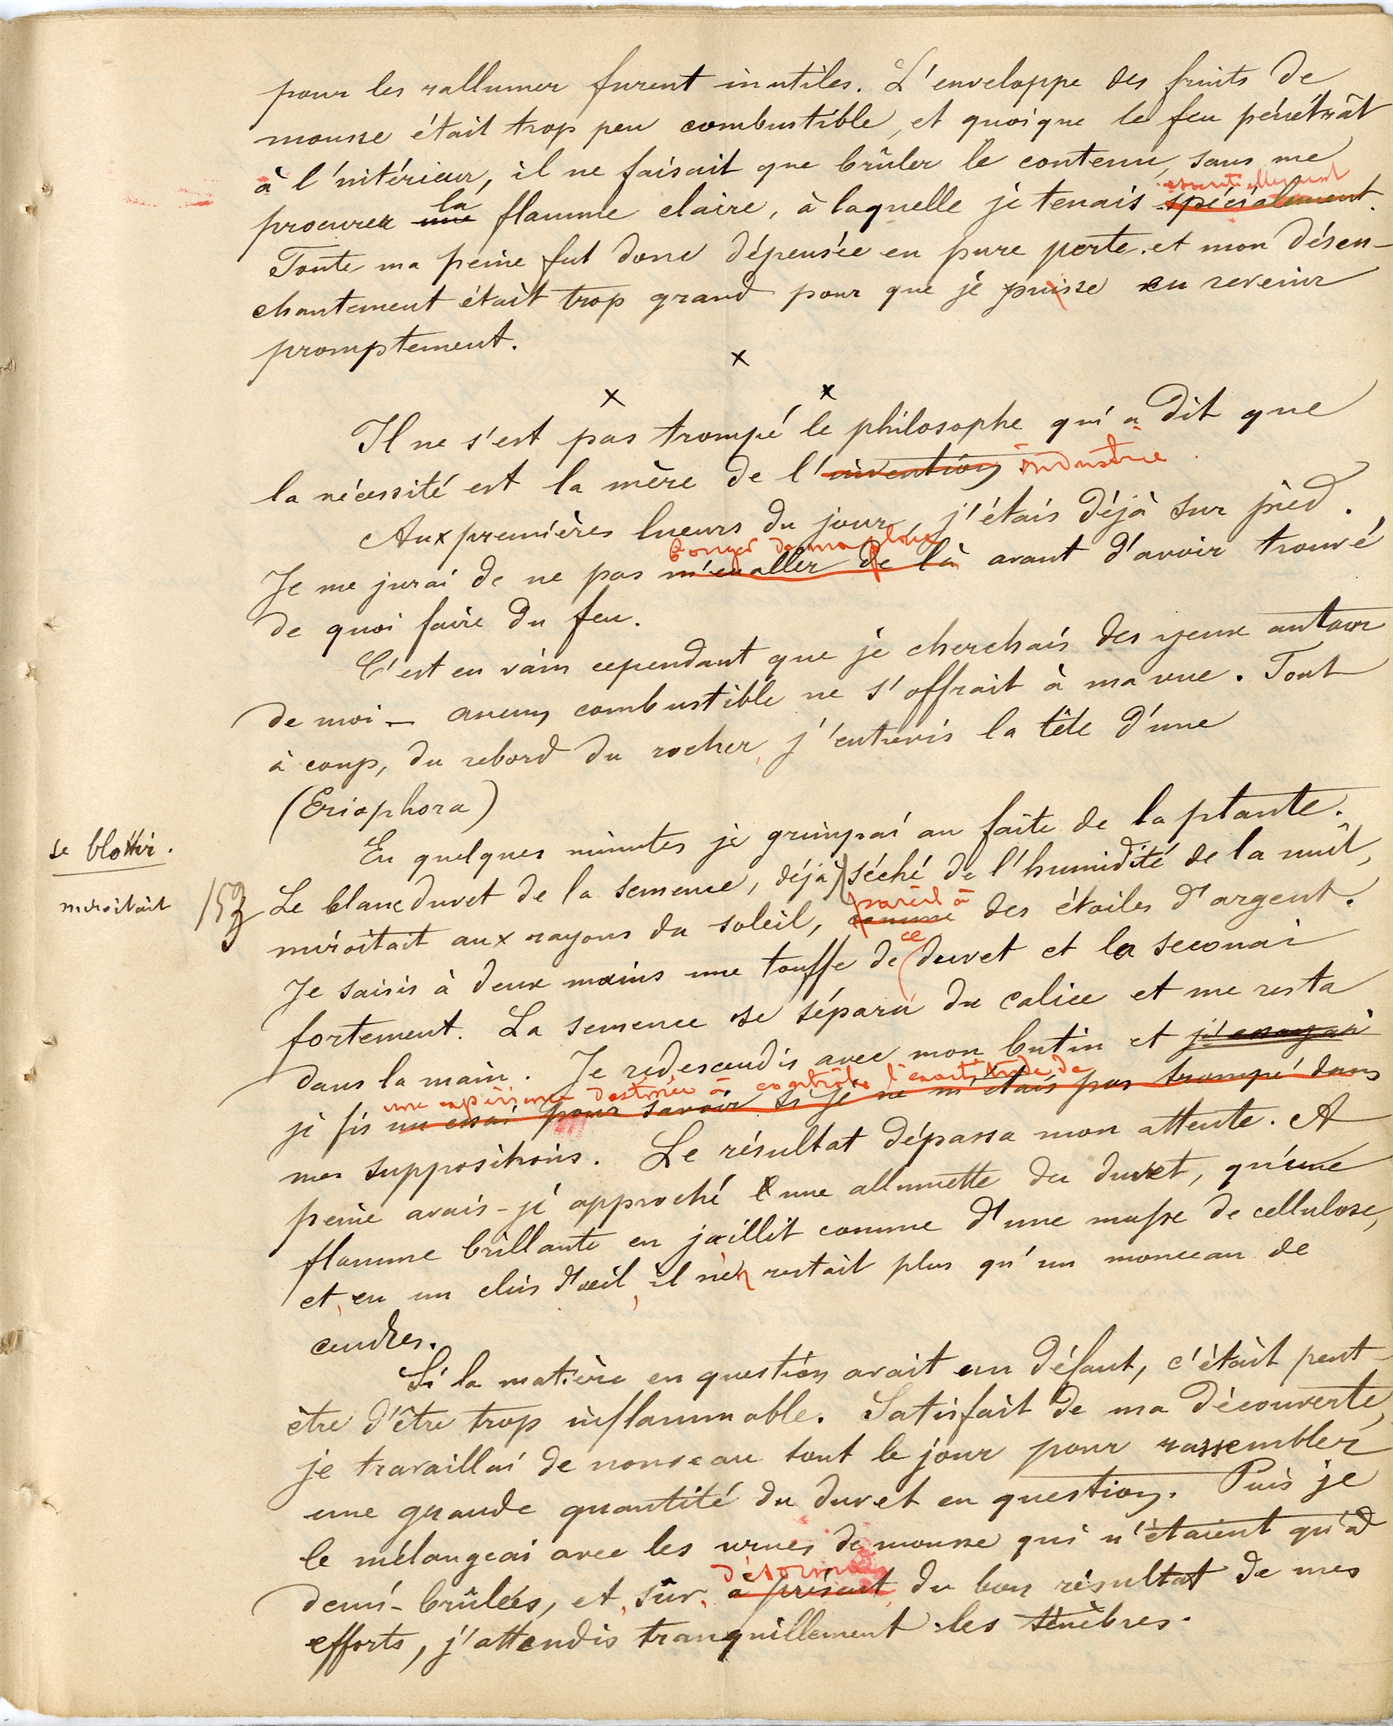 pour les rallumer furent inutiles. L'enveloppe des fruits de
mousse était trop peu combustible, et quoique le feu pénétrât
à l'intérieur, il ne faisait que brûler le contenu, sans me
essentiellement
procurer une la flamme claire, à laquelle je tenais spécialement.
Toute ma peine fut donc dépensée en pure perte et mon désen-
chantement était trop grand pour que je puisse en revenir
promptement.
x
x x
Il ne s'est pas trompé le philosophe qui a dit que
la nécessité est la mère de l'invention industrie.
Aux premières lueurs du jour, j'étais déjà sur pied.
bouger de ma place
Je me jurai de ne pas m'en aller de là avant d'avoir trouvé
de quoi faire du feu.
C'est en vain cependant que je cherchais des yeux autour
de moi – aucun combustible ne s'offrait à ma vue. Tout
à coup, du rebord du rocher, j'entrevis la tête d'une
(Eriophora)
En quelques minutes je grimpai au faîte de la plante.
se blottir.
Le blanc duvet de la semence, déjà séché de l'humidité de la nuit,
miroitait
153
pareil à
miroitait aux rayons du soleil, comme des étoiles d'argent.
Je saisis à deux mains une touffe de ce duvet et la secouai
fortement. La semence se sépara du calice et me resta
dans la main. Je redescendis avec mon butin et j'essayai
une expérience destinée à contrôler l'exactitude de
je fis un essai pour savoir si je ne m'étais pas trompé dans
mes suppositions. Le résultat dépassa mon attente. A
peine avais-je approché une allumette du duvet, qu'une
flamme brillante en jaillit comme d'une masse de cellulose,
et, en un clin d'œil, il n'en restait plus qu'un monceau de
cendres.
Si la matière en question avait un défaut, c'était peut-
être d'être trop inflammable. Satisfait de ma découverte,
je travaillai de nouveau tout le jour pour rassembler
une grande quantité du duvet en question. Puis je
le mélangeai avec les urnes de mousse qui n'étaient qu'à
désormais
demi-brûlées, et, sûr, à présent, du bon résultat de mes
efforts, j'attendis tranquillement les ténèbres.